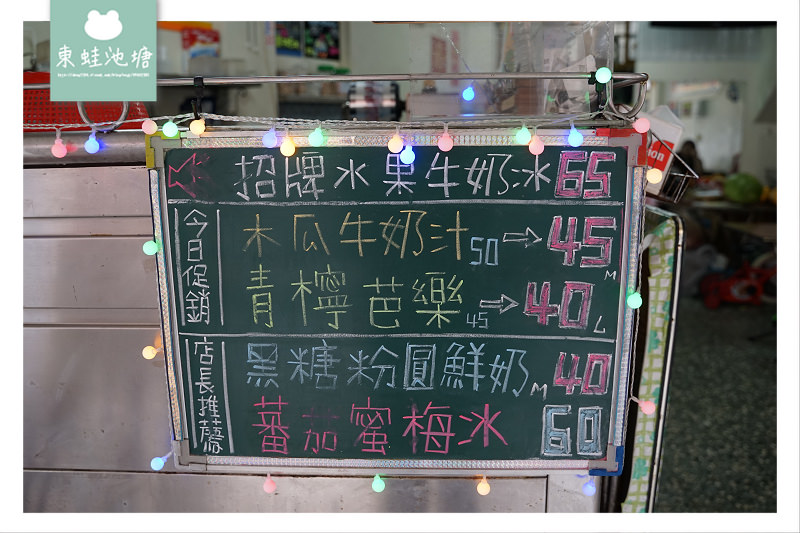 東蛙池塘
招牌水果牛奶冰 65
今日促銷
木瓜牛奶汁 50 → 45 M
青檸芭樂 45 → 40 L
店長推薦
黑糖粉圓鮮奶 M 40
蕃茄蜜梅冰 60